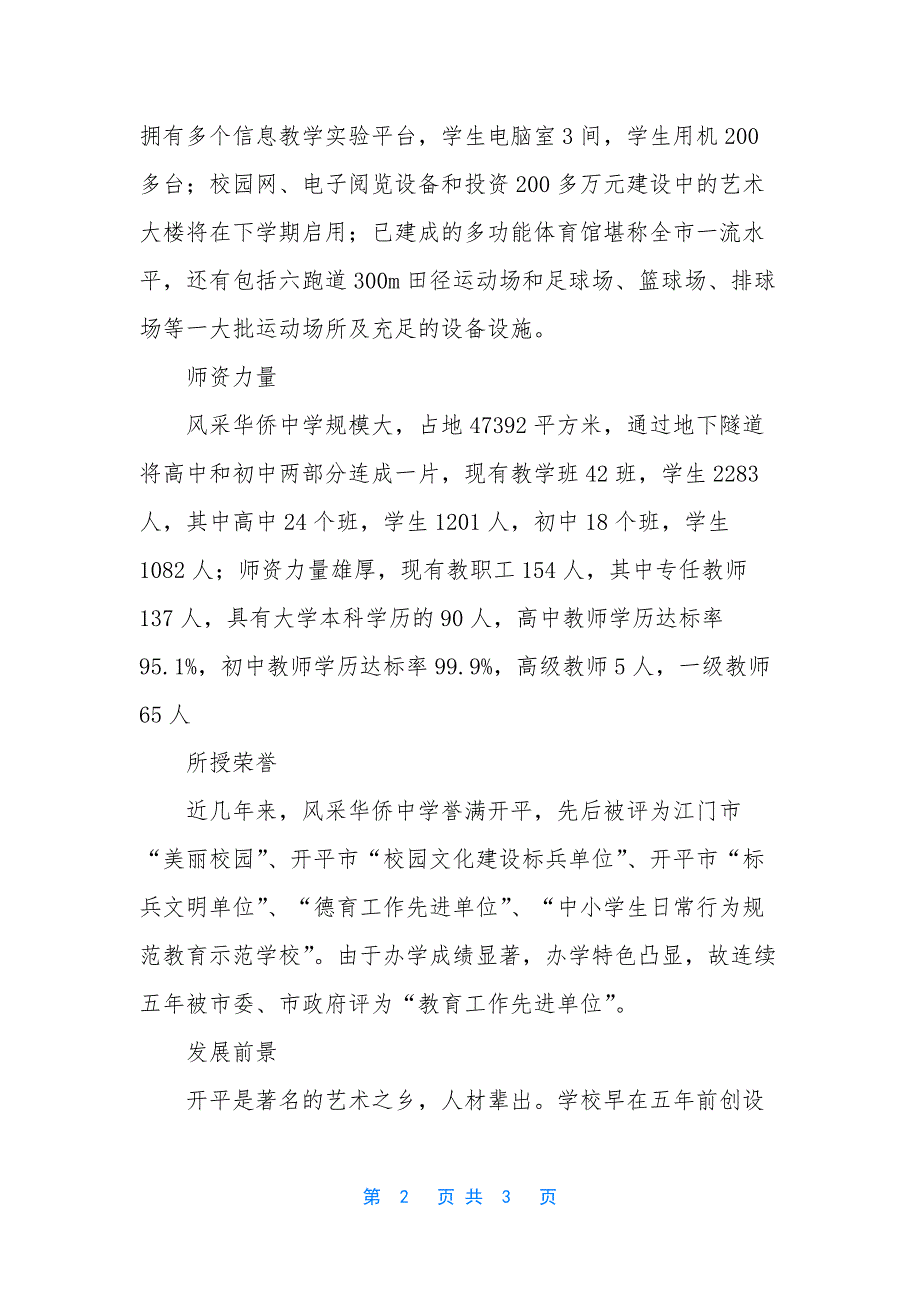 拥有多个信息教学实验平台，学生电脑室 3 间，学生用机 200
多台；校园网、电子阅览设备和投资 200 多万元建设中的艺术
大楼将在下学期启用；已建成的多功能体育馆堪称全市一流水
平，还有包括六跑道 300m 田径运动场和足球场、篮球场、排球
场等一大批运动场所及充足的设备设施。
师资力量
风采华侨中学规模大，占地 47392 平方米，通过地下隧道
将高中和初中两部分连成一片，现有教学班 42 班，学生 2283
人，其中高中 24 个班，学生 1201 人，初中 18 个班，学生
1082 人；师资力量雄厚，现有教职工 154 人，其中专任教师
137 人，具有大学本科学历的 90 人，高中教师学历达标率
95.1%，初中教师学历达标率 99.9%，高级教师 5 人，一级教师
65 人
所授荣誉
近几年来，风采华侨中学誉满开平，先后被评为江门市
“美丽校园”、开平市“校园文化建设标兵单位”、开平市“标
兵文明单位”、“德育工作先进单位”、“中小学生日常行为规
范教育示范学校”。由于办学成绩显著，办学特色凸显，故连续
五年被市委、市政府评为“教育工作先进单位”。
发展前景
开平是著名的艺术之乡，人材辈出。学校早在五年前创设
第 2 页 共 3 页